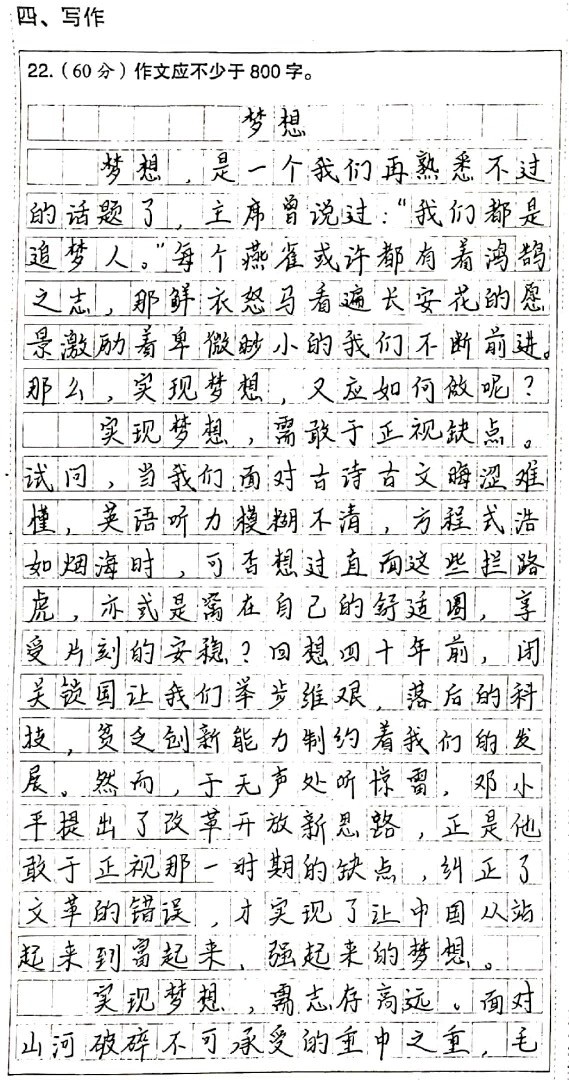 四、写作
22.（60分）作文应不少于800字。
梦想
梦想，是一个我们再熟悉不过
的话题了，主席曾说过：“我们都是
追梦人。”每个燕雀或许都有着鸿鹄
之志，那鲜衣怒马看遍长安花的愿
景激励着卑微眇小的我们不断前进。
那么，实现梦想，又应如何做呢？
实现梦想，需敢于正视缺点。
试问，当我们面对古诗古文晦涩难
懂，英语听力模糊不清，方程式浩
如烟海时，可否想过直面这些拦路
虎，亦或是窝在自己的舒适圈，享
受片刻的安稳？回想四十年前，闭
关锁国让我们举步维艰，落后的科
技，贫乏创新能力制约着我们的发
展。然而，于无声处听惊雷，邓小
平提出了改革开放新思路，正是他
敢于正视那一时期的缺点，纠正了
文革的错误，才实现了让中国从站
起来到富起来、强起来的梦想。
实现梦想，需志存高远。面对
山河破碎不可承受的重中之重，毛